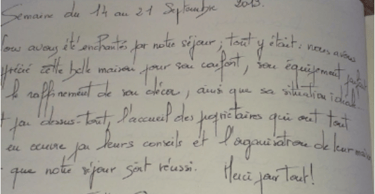 Semaine du 14 au 21 Septembre 2013.
Nous avons été enchantés par notre séjour; tout y était: nous avons
apprécié cette belle maison pour son confort, son équipement parfait
le raffinement de son décor, ainsi que sa situation idéale
et par dessus-tout l'accueil des propriétaires qui ont tout
en oeuvre par leurs conseils et l'organisation de leur maison
que notre séjour soit réussi. Merci pour tout!